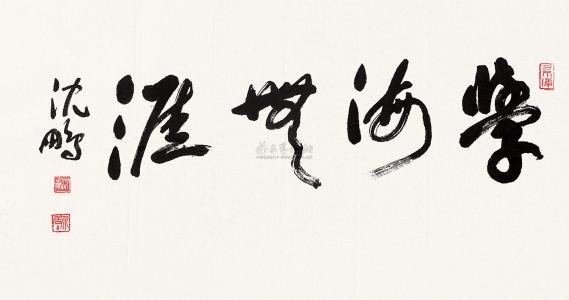 學海無涯
沈鵬